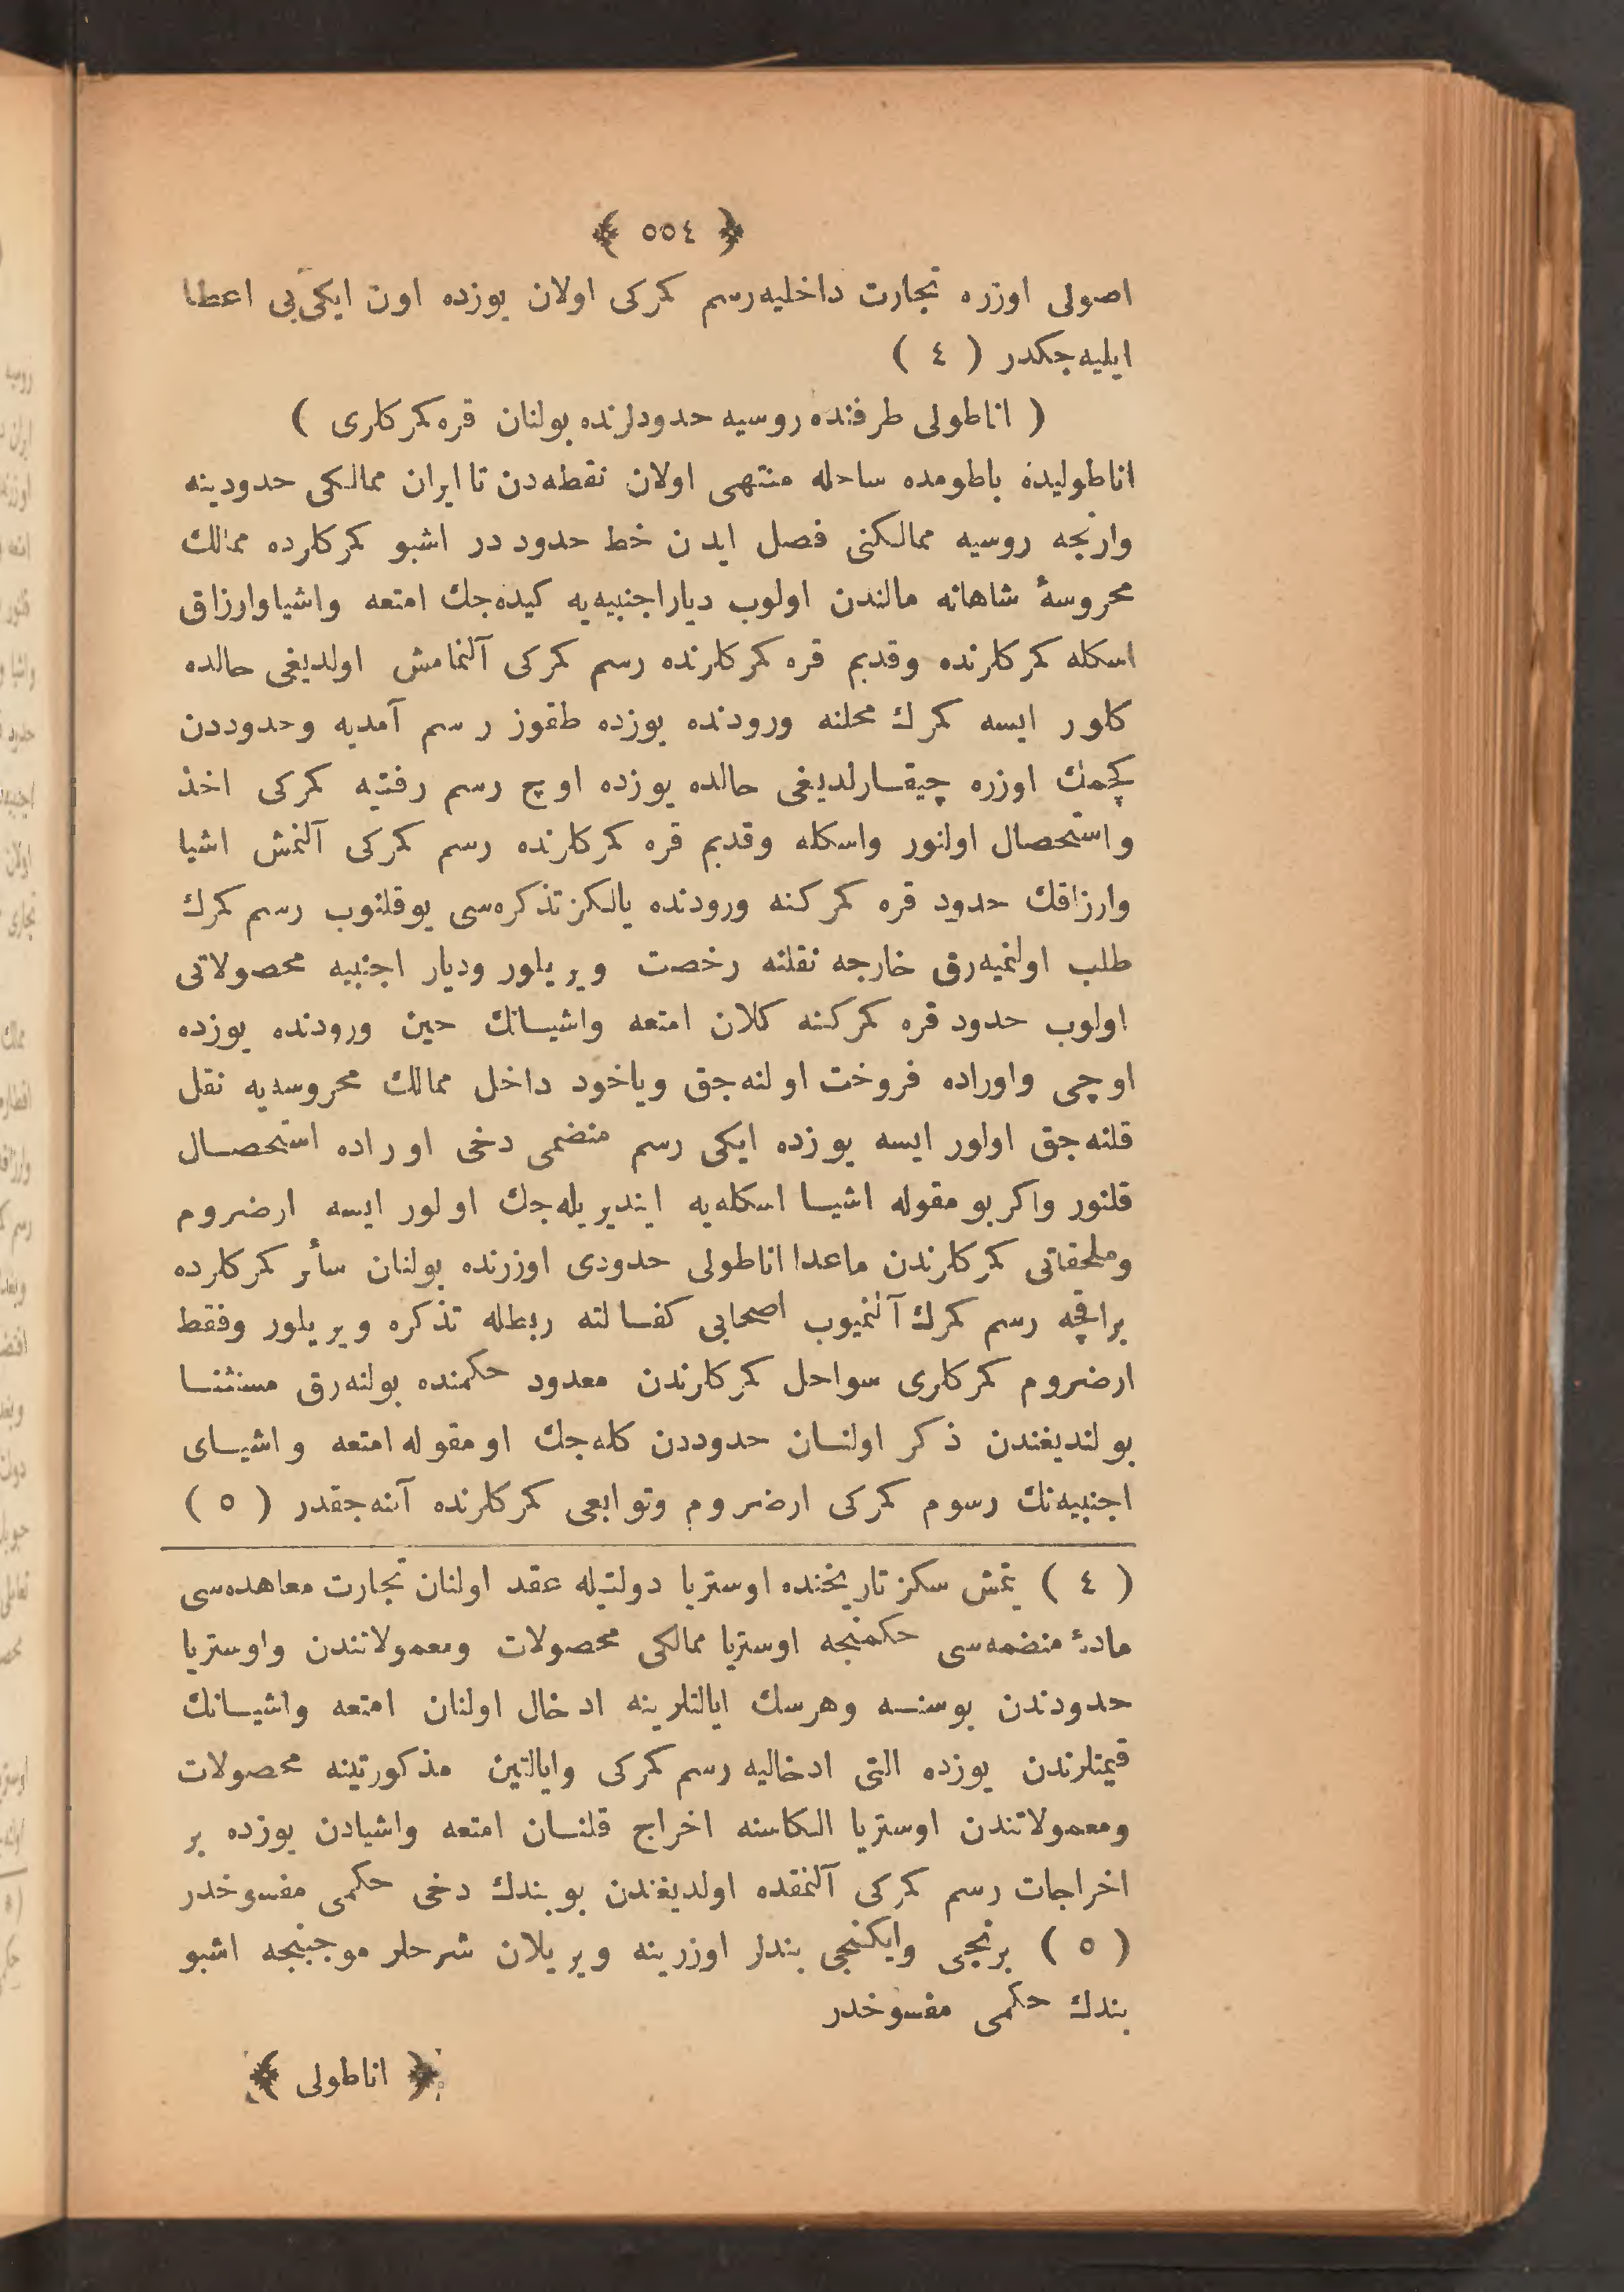 ﴿ ٥٥٤ ﴾
اصولی اوزره تجارت داخلیه رسم كمركی اولان یوزده اون ایكی یی اعطا
ایلیه جكدر ( ٤ )
( اناطولی طرفنده روسیه حدودلرنده بولنان قره كمركلری )
اناطولیده باطومده ساحله منتهی اولان نقطه‌دن تا ایران ممالكی حدودینه
وارنجه روسیه ممالكنی فصل ایدن خط حدود در اشبو كمركلرده ممالك
محروسهٔ شاهانه مالندن اولوب دیار اجنبیه‌یه كیده‌جك امتعه واشیا وارزاق
اسكله كمركلرنده وقدیم قره كمركلرنده رسم كمركی آلنمامش اولدیغی حالده
كلور ایسه كمرك محلنه ورودنده یوزده طقوز رسم آمدیه وحدوددن
كچمك اوزره چیقارلدیغی حالده یوزده اوچ رسم رفتیه كمركی اخذ
واستحصال اولنور واسكله وقدیم قره كمركلرنده رسم كمركی آلنمش اشیا
وارزاقك حدود قره كمركنه ورودنده یالكز تذكره‌سی یوقلنوب رسم كمرك
طلب اولنمیه‌رق خارجه نقلنه رخصت ویریلور ودیار اجنبیه محصولاتی
اولوب حدود قره كمركنه كلان امتعه واشیانك حین ورودنده یوزده
اوچی واوراده فروخت اولنه‌جق ویاخود داخل ممالك محروسه‌یه نقل
قلنه‌جق اولور ایسه یوزده ایكی رسم منضمی دخی اوراده استحصال
قلنور واكر بو مقوله اشیا اسكله‌یه ایندیریله‌جك اولور ایسه ارضروم
وملحقاتی كمركلرندن ماعدا اناطولی حدودی اوزرنده بولنان سائر كمركلرده
براقچه رسم كمرك آلنمیوب اصحابی كفالته ربطله تذكره ویریلور وفقط
ارضروم كمركلری سواحل كمركلرندن معدود حكمنده بولنه‌رق مستثنا
بولندیغندن ذكر اولنان حدوددن كله‌جك او مقوله امتعه واشیای
اجنبیه‌نك رسوم كمركی ارضروم وتوابعی كمركلرنده آلنه‌جقدر ( ٥ )
( ٤ ) یتمش سكز تاریخنده اوستریا دولتیله عقد اولنان تجارت معاهده‌سی
مادهٔ منضمه‌سی حكمنجه اوستریا ممالكی محصولات ومعمولاتندن واوستریا
حدودندن بوسنه وهرسك ایالتلرینه ادخال اولنان امتعه واشیانك
قیمتلرندن یوزده التی ادخالیه رسم كمركی وایالتین مذكورتینه محصولات
ومعمولاتندن اوستریا الكاسنه اخراج قلنان امتعه واشیادن یوزده بر
اخراجات رسم كمركی آلنمقده اولدیغندن بو بندك دخی حكمی مفسوخدر
( ٥ ) برنجی وایكنجی بندلر اوزرینه ویریلان شرحلر موجبنجه اشبو
بندك حكمی مفسوخدر
﴿ اناطولی ﴾